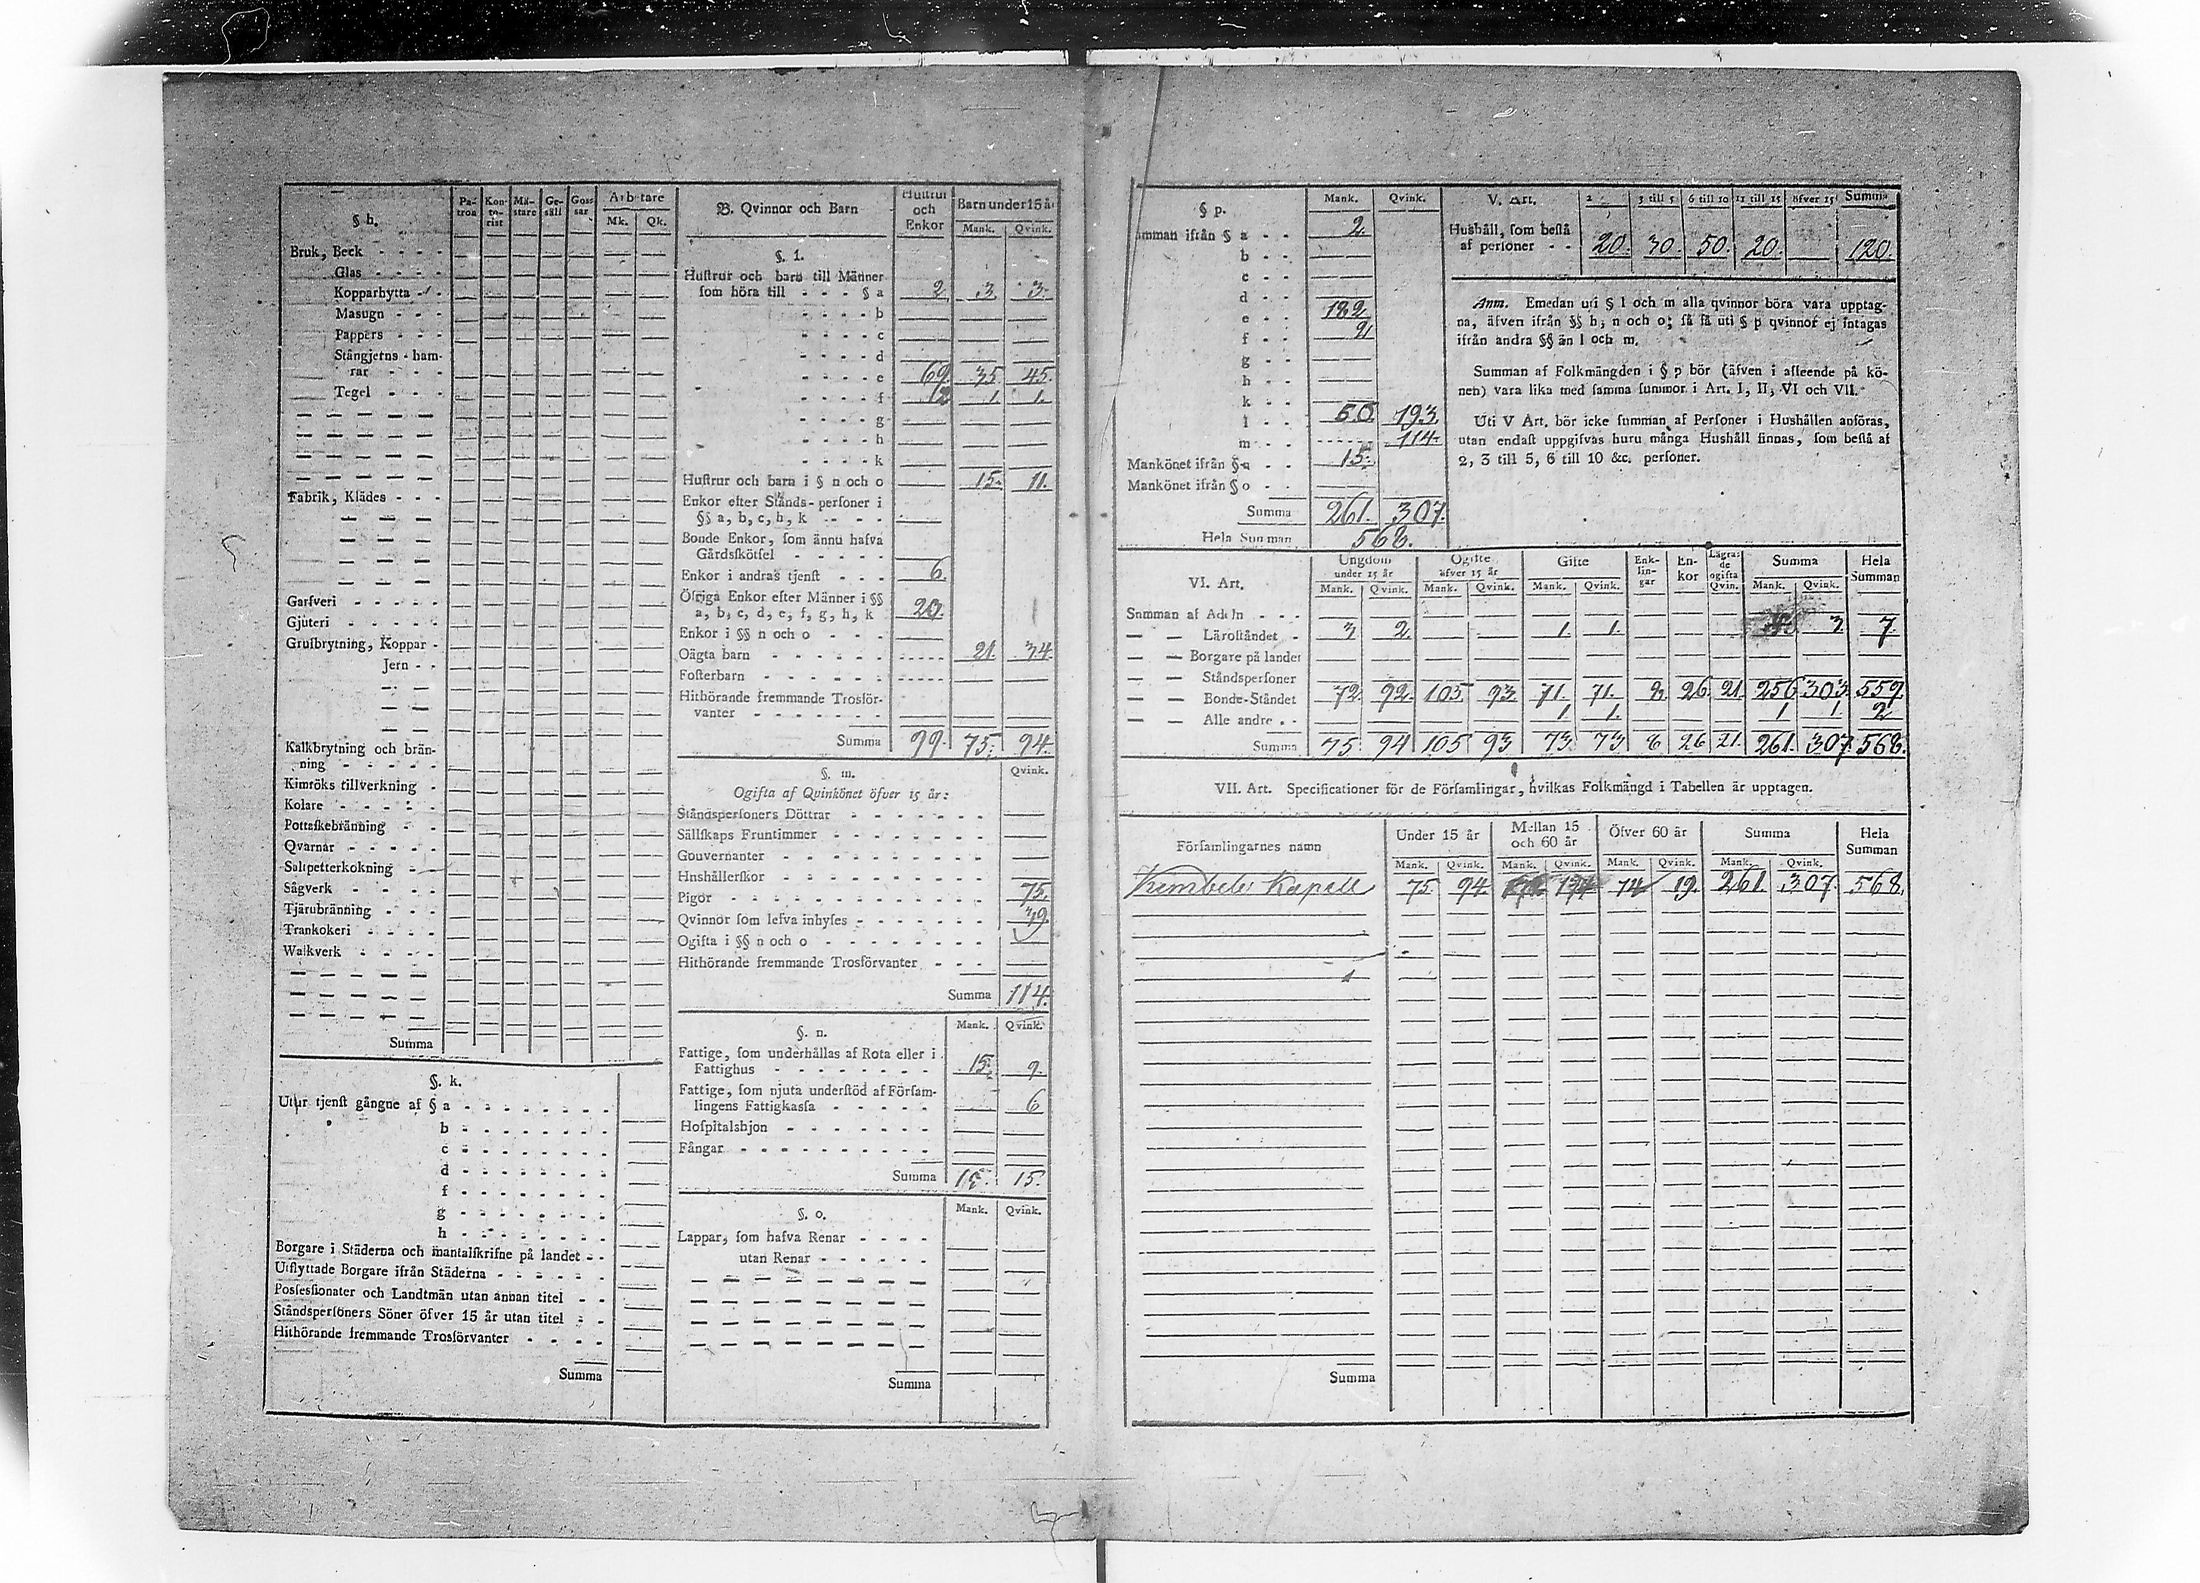 § h. Pa-tron Kon-to-rist Mä-stare Ge-säll Gos-sar Arbetare
Mk. Qk.
Bruk, Beck - - - -
Glas - - - -
Kopparhytta - -
Masugn - - -
Pappers - - -
Stångjerns-ham-
rar - - -
Tegel - - -
Fabrik, Klädes - - -
Garfveri - - - - -
Gjuteri - - - - -
Grufbrytning, Koppar -
Jern - -
Kalkbrytning och brän-
ning - - - - -
Kimröks tillverkning -
Kolare - - - - -
Pottaskebränning - -
Qvarnar - - - - -
Saltpetterkokning -
Sågverk - - - - -
Tjärubränning - - -
Trankokeri - - - -
Walkverk - - - -
Summa
§. k.
Utur tjenst gångne af § a - - - - - - -
b - - - - - - -
c - - - - - - -
d - - - - - - -
f - - - - - - -
g - - - - - - -
h - - - - - - -
Borgare i Städerna och mantalskrifne på landet - -
Utflyttade Borgare ifrån Städerna - - - - - -
Possessionater och Landtmän utan annan titel - -
Ståndspersoners Söner öfver 15 år utan titel - -
Hithörande fremmande Trosförvanter - - - -
Summa
B. Qvinnor och Barn Hustrur och Enkor Barn under 15 år
Mank. Qvink.
§. l.
Hustrur och barn till Männer
som höra till - - - § a 2. 3. 3.
- - - - b
- - - - c
- - - - d
- - - - e 69. 35. 45.
- - - - f 12 1. 1.
- - - - g
- - - - h
- - - - k
Hustrur och barn i § n och o 15. 11.
Enkor efter Stånds-personer i
§§ a, b, c, h, k - - - -
Bonde Enkor, som ännu hafva
Gårdsskötsel - - - - -
Enkor i andras tjenst - - - 6.
Öfriga Enkor efter Männer i §§
a, b, c, d, e, f, g, h, k 20.
Enkor i §§ n och o - - -
Oägta barn - - - - - - 21. 34.
Fosterbarn - - - - - - -
Hithörande fremmande Trosför-
vanter - - - - - - -
Summa 99. 75. 94.
§. m. Qvink.
Ogifta af Qvinkönet öfver 15 år:
Ståndspersoners Döttrar - - - - - - -
Sällskaps Fruntimmer - - - - - - - -
Gouvernanter - - - - - - - - - -
Hushållerskor - - - - - - - - - -
Pigor - - - - - - - - - - - - 75.
Qvinnor som lefva inhyses - - - - - - - 39.
Ogifta i §§ n och o - - - - - - - -
Hithörande fremmande Trosförvanter - - -
Summa 114.
§. n. Mank. Qvink.
Fattige, som underhållas af Rota eller i
Fattighus - - - - - - - - 15. 9.
Fattige, som njuta understöd af Försam-
lingens Fattigkassa - - - - - 6
Hospitalshjon - - - - - - -
Fångar - - - - - - - - - -
Summa 15. 15.
§. o. Mank. Qvink.
Lappar, som hafva Renar - - - -
utan Renar - - - - -
Summa
§ p. Mank. Qvink.
Summan ifrån § a - - 2.
b - -
c - -
d - -
e - - 182
f - -
g - -
h - -
k - -
l - - 60. 193.
m - - 114.
Mankönet ifrån § n - - 15.
Mankönet ifrån § o - -
Summa 261. 307.
Hela Summan 568.
V. Art. 2 3 till 5 6 till 10 11 till 15 öfver 15 Summa
Hushåll, som bestå
af personer - - 20. 30. 50. 20. 120.
Anm. Emedan uti § l och m alla qvinnor böra vara upptag-
na, äfven ifrån §§ h, n och o; så få uti § p qvinnor ej intagas
ifrån andra §§ än l och m.
Summan af Folkmängden i § p bör (äfven i afseende på kö-
nen) vara lika med samma summor i Art. I, II, VI och VII.
Uti V Art. bör icke summan af Personer i Hushållen anföras,
utan endast uppgifvas huru många Hushåll finnas, som bestå af
2, 3 till 5, 6 till 10 &c. personer.
VI. Art. Ungdom under 15 år Ogifte öfver 15 år Gifte Enk-lin-gar En-kor Lägra-de ogifta Qvin. Summa Hela Summan
Mank. Qvink. Mank. Qvink. Mank. Qvink. Mank. Qvink.
Summan af Adeln - - -
— — Läroståndet - 3 2. 1. 1. 3. 7.
— — Borgare på landet
— — Ståndspersoner
— — Bonde-Ståndet 72. 92. 105. 93. 71. 71. 8. 26. 21. 256 303. 559.
— — Alle andre - - 1 1. 1 1. 2
Summa 75. 94 105 93 73 73 8 26 21. 261. 307. 568.
VII. Art. Specificationer för de Församlingar, hvilkas Folkmängd i Tabellen är upptagen.
Församlingarnes namn Under 15 år Mellan 15 och 60 år Öfver 60 år Summa Hela Summan
Mank. Qvink. Mank. Qvink. Mank. Qvink. Mank. Qvink.
Kapell 75. 94. 194 14 19. 261. 307. 568.
Summa